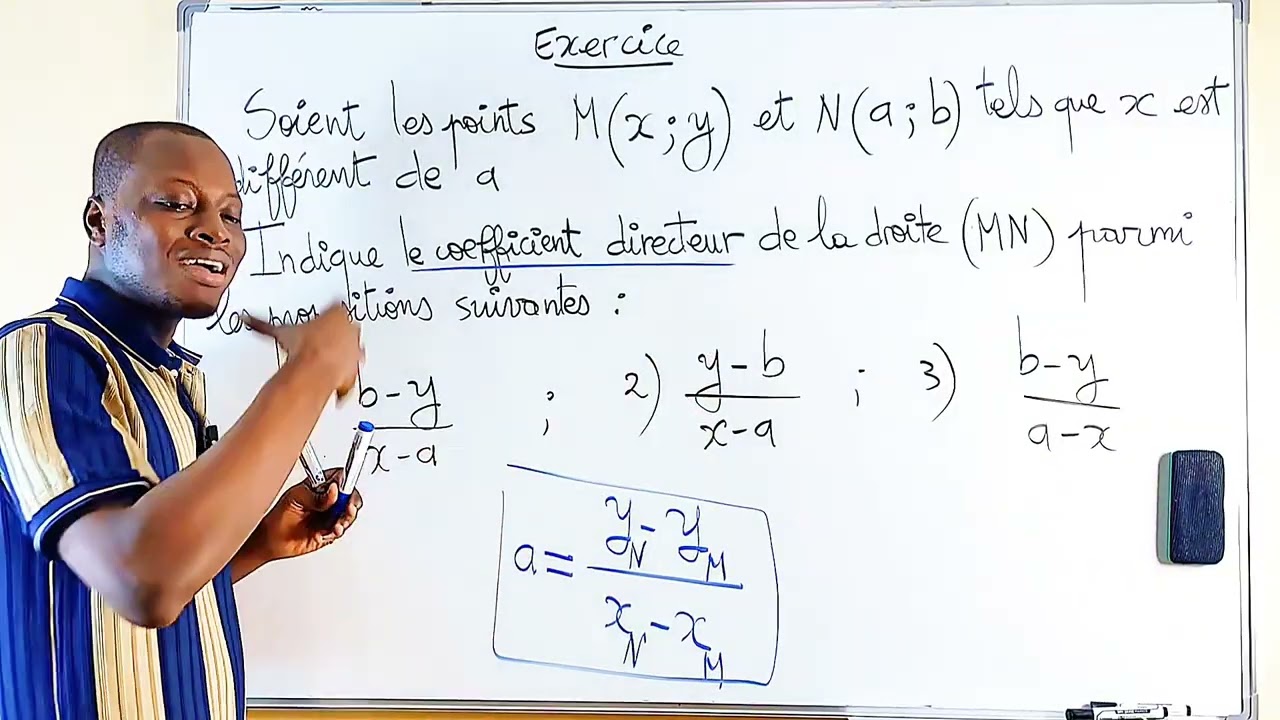 Exercice
Soient les points M(x;y) et N(a;b) tels que x est
différent de a
Indique le coefficient directeur de la droite (MN) parmi
suivantes :
b-y / x-a ; 2) y-b / x-a ; 3) b-y / a-x
a = (y_N - y_M) / (x_N - x_M)